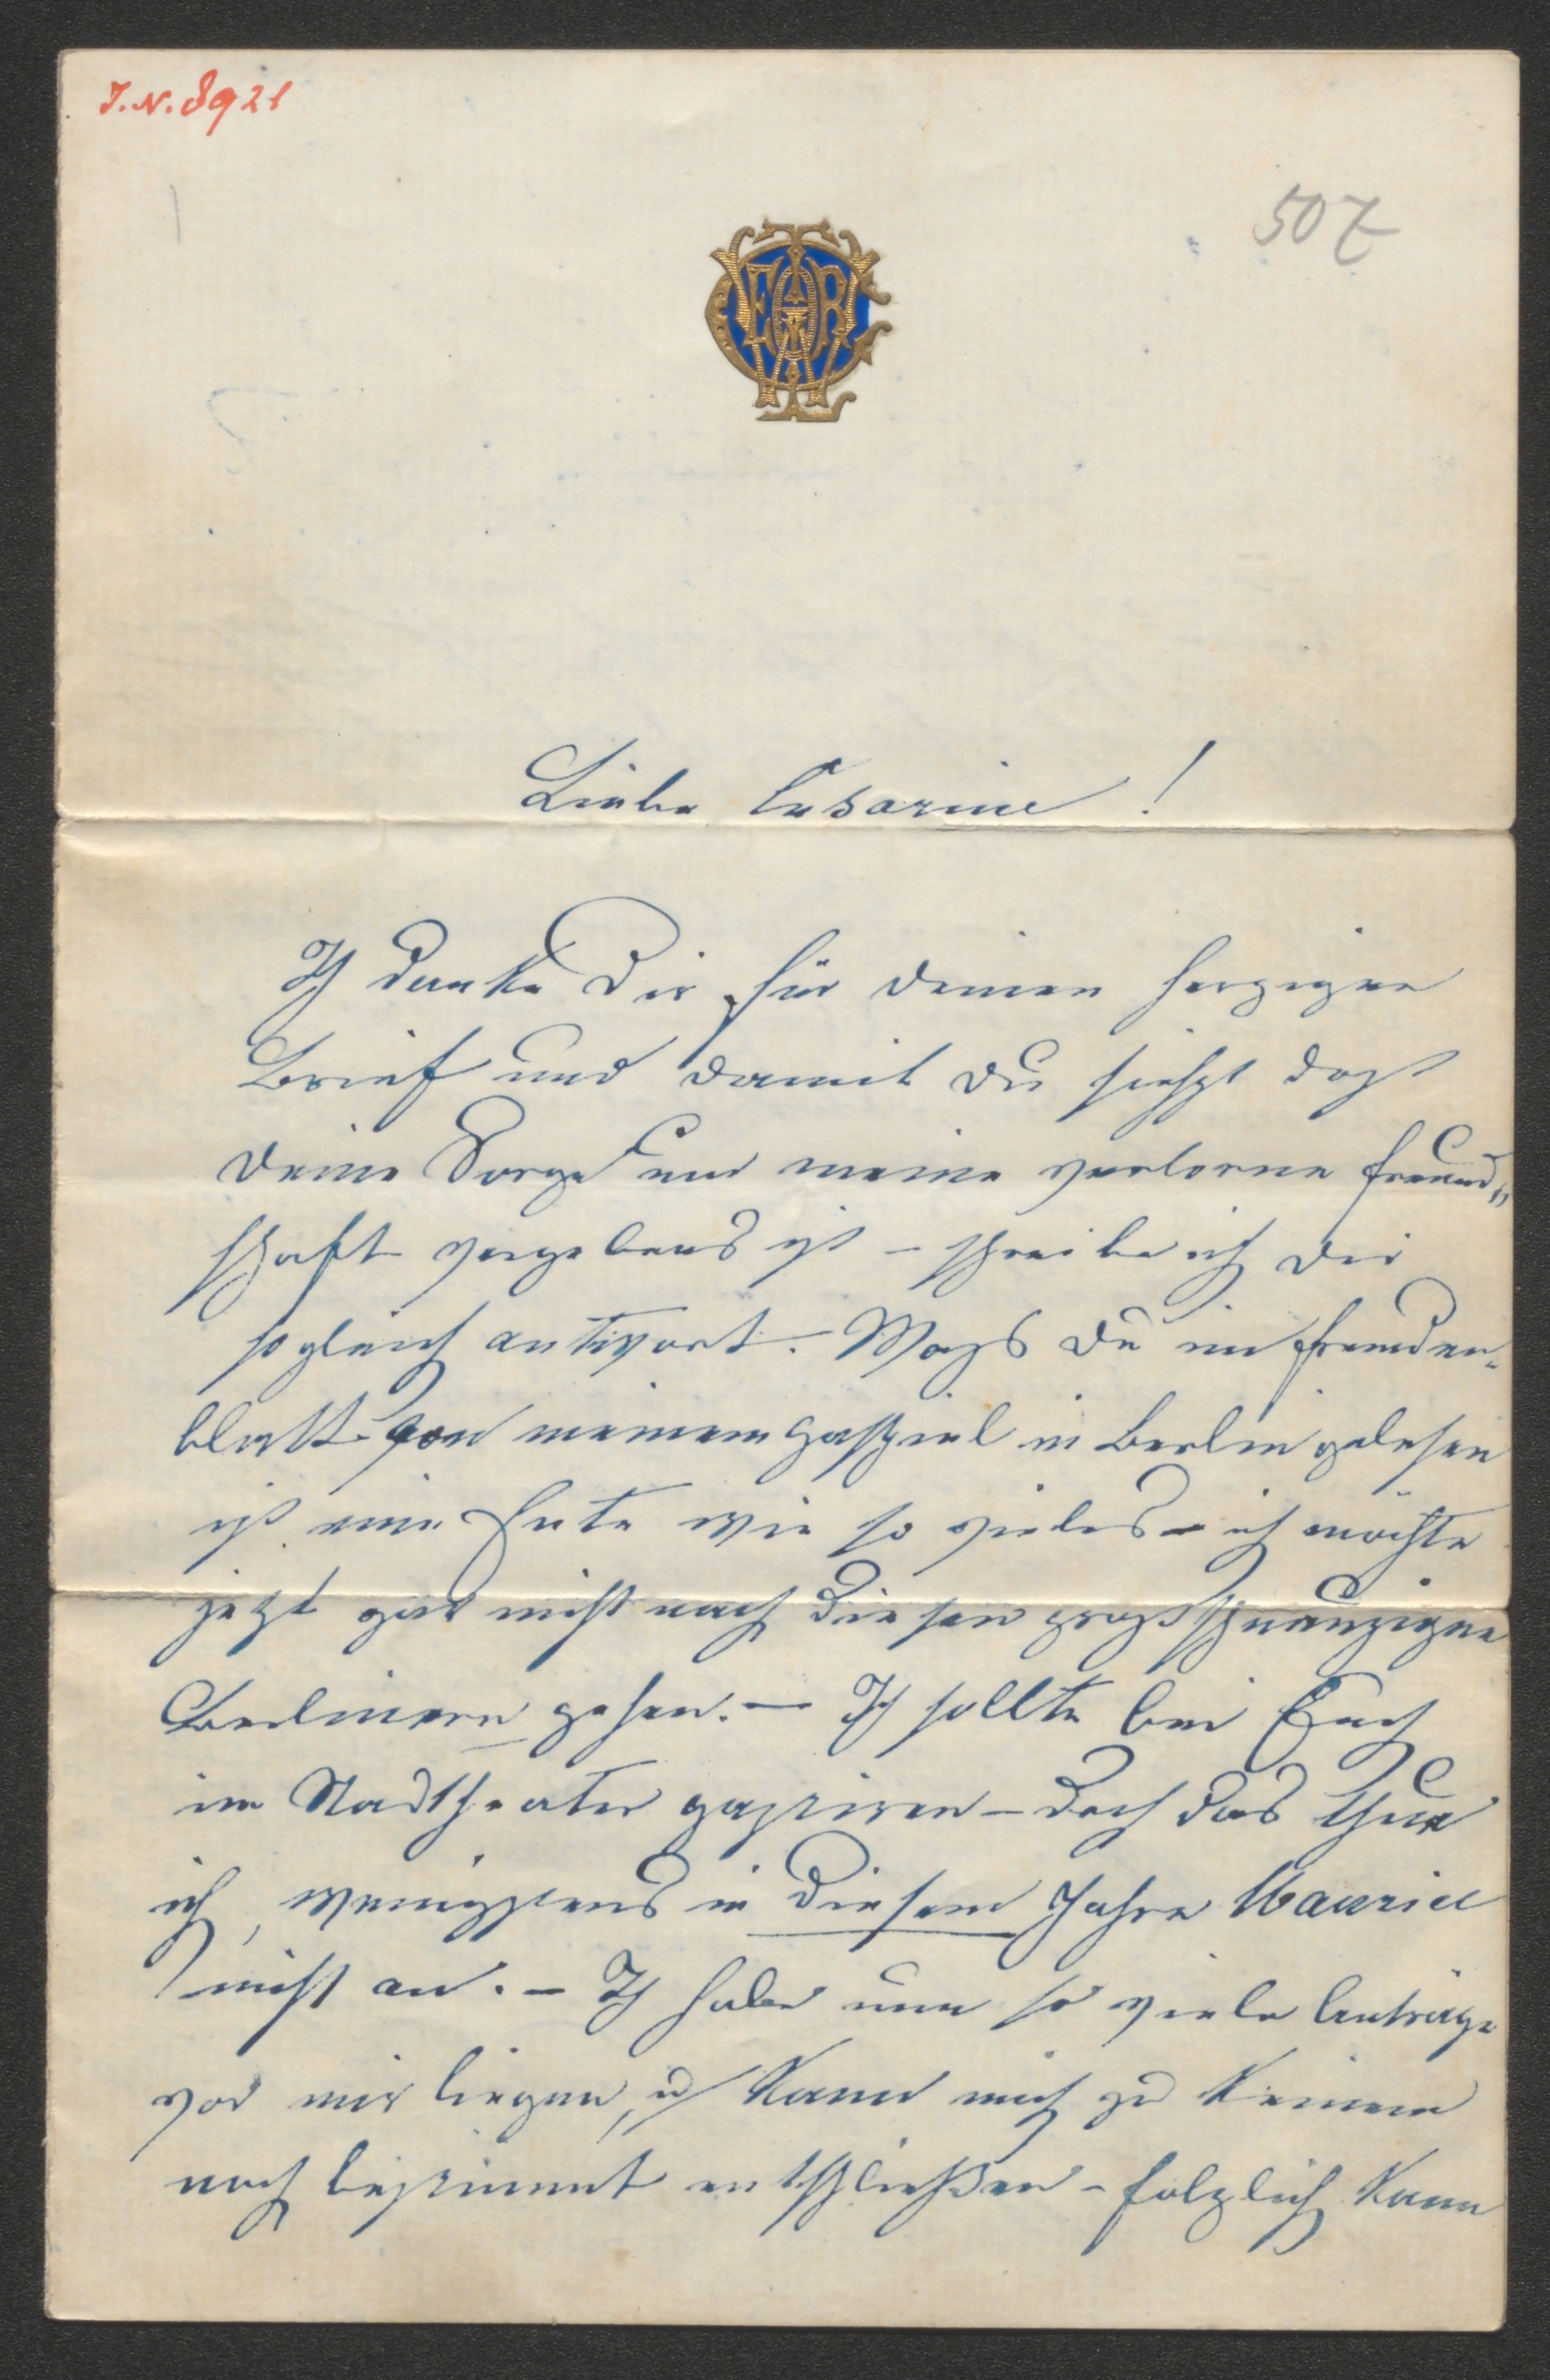 J.N. 8921
507
Liebe Cesarine!
Ich danke Dir für deinen herzigen
Brief und damit du siehst dass
deine Sorge um meine verlorne Freund„
schaft vergebens ist – schreibe ich dir
sogleich antwort. – Was Du im Fremden-
blatt von meinem Gastspiel in Berlin gelesen
ist eine Ente wie so vieles – ich möchte
jetzt gar nicht nach diesen grossschnauzigen
Berlinern gehen. – Ich sollte bei Euch
im Stadttheater gastiren – doch das thue
ich, wenigstens in diesem Jahre Maurice
nicht an. – Ich habe nun so viele Anträge
vor mir liegen, u kann mich zu keinem
noch bestimmt entschließen – folglich kann